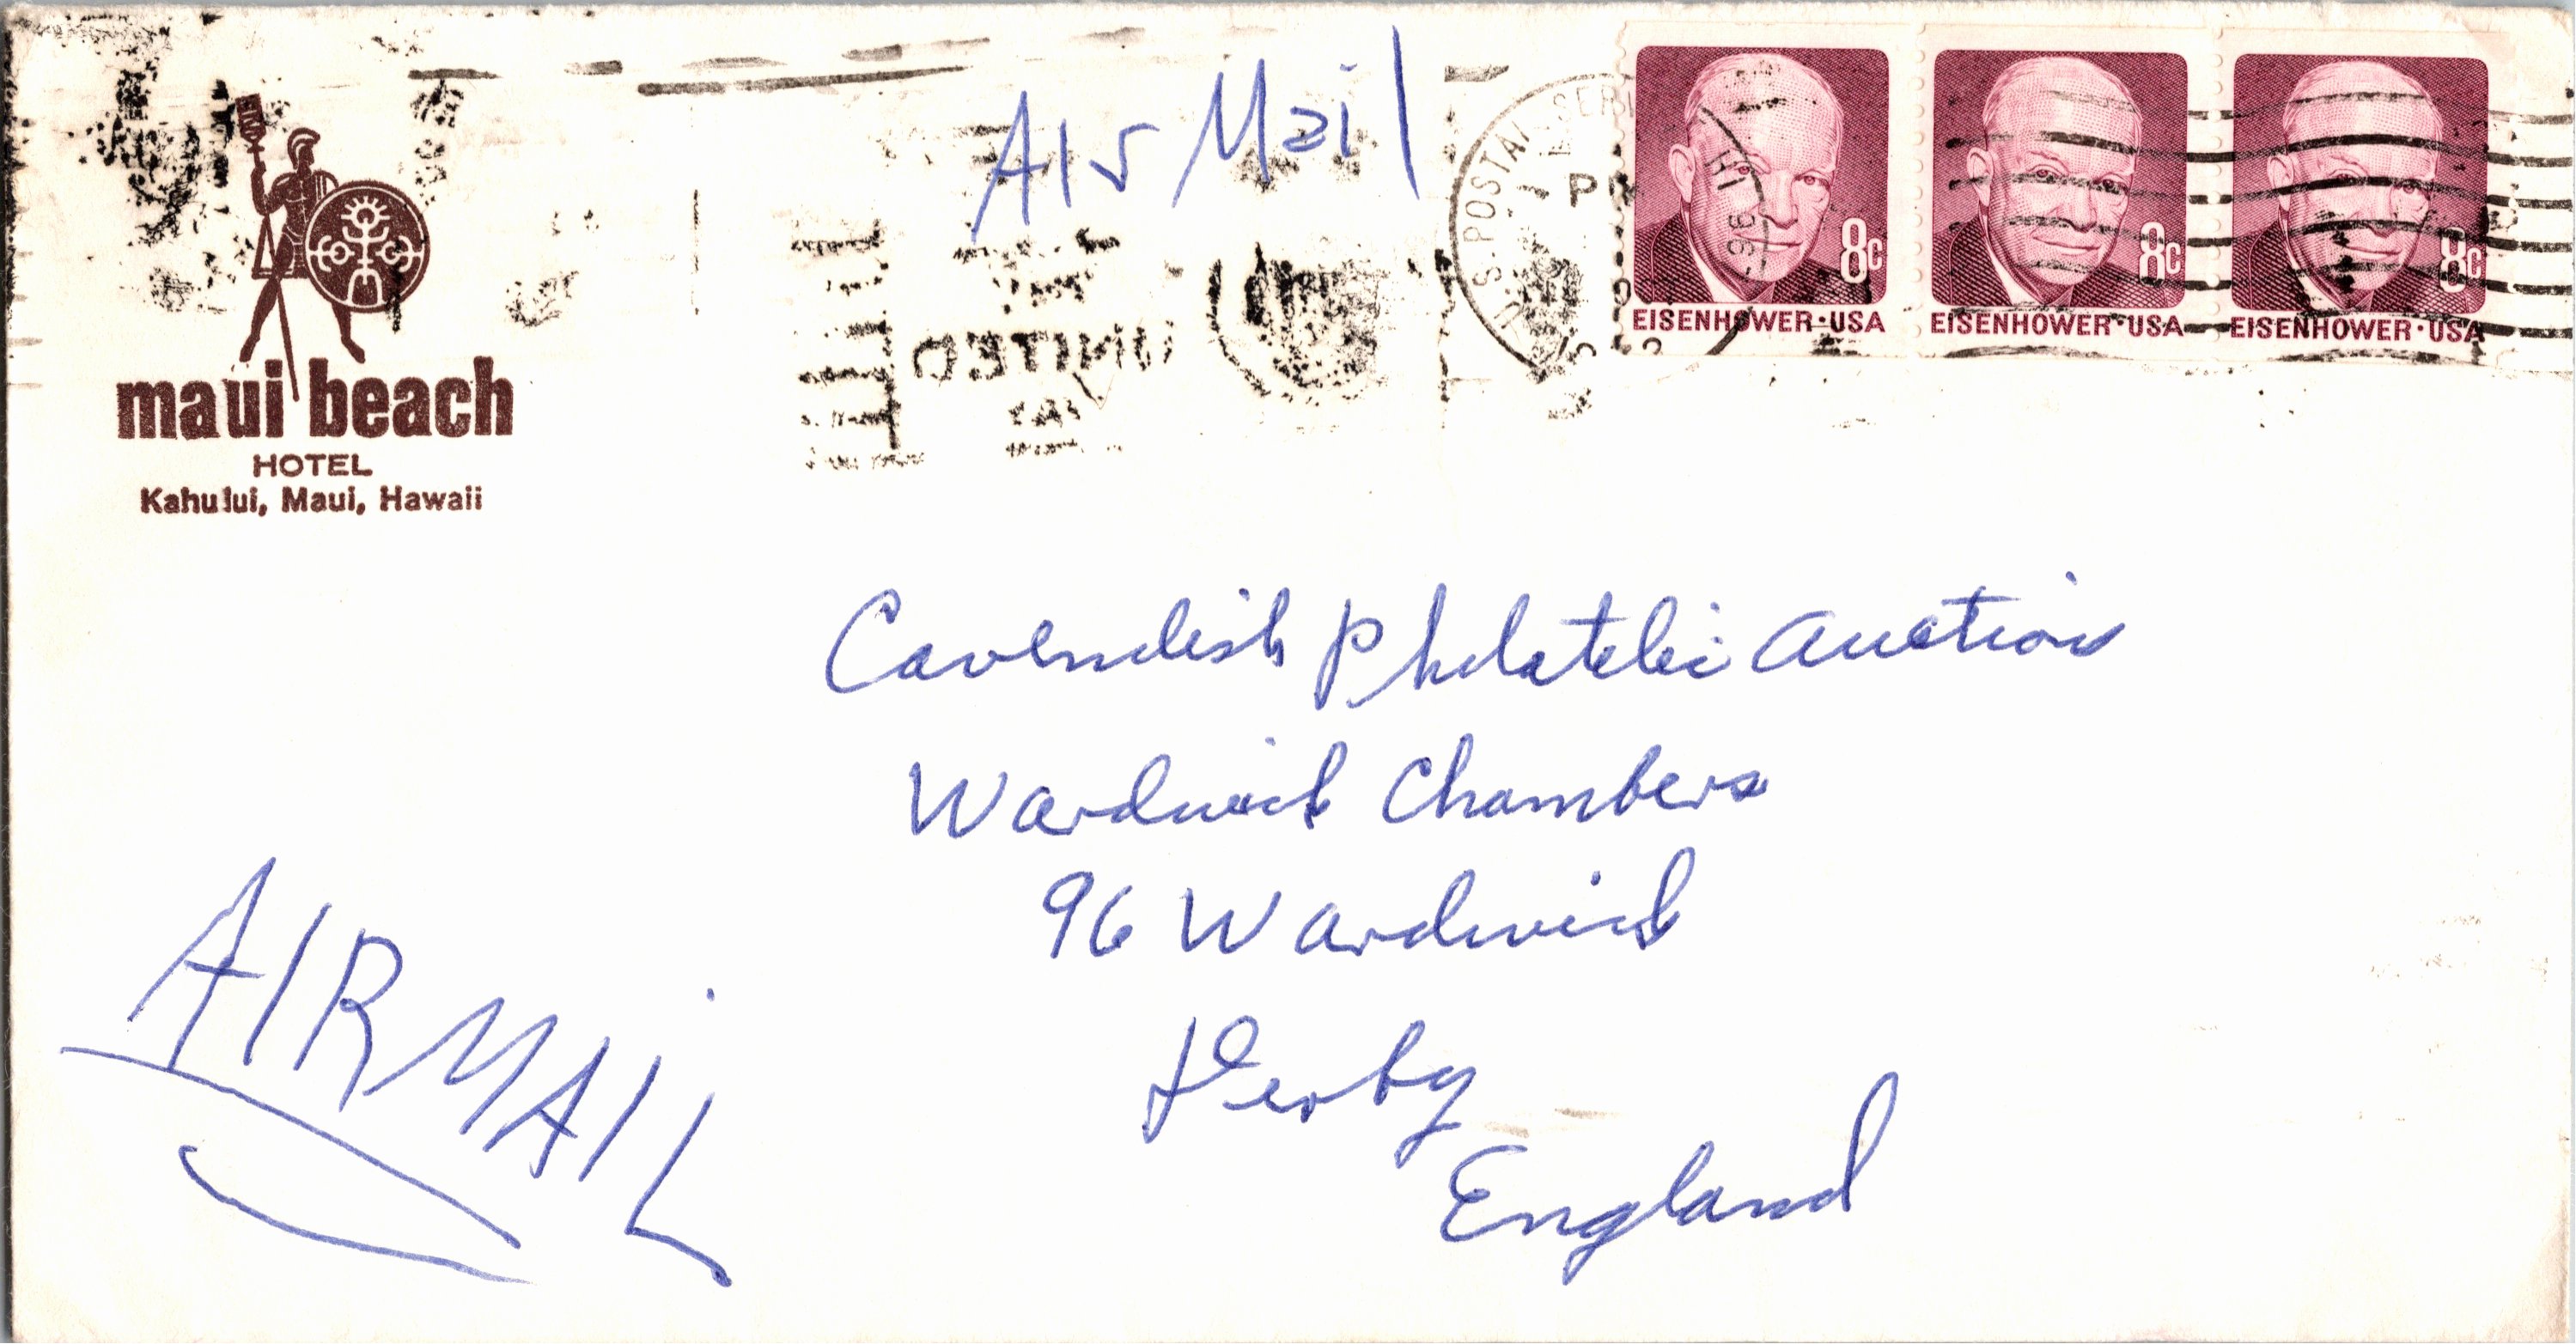 Air Mail
U.S. POSTAL SERV
PM
HI 96
8c
EISENHOWER·USA
8c
EISENHOWER·USA
8c
EISENHOWER·USA
UNITED
maui beach
HOTEL
Kahului, Maui, Hawaii
Cavendish Philatelic Auctions
Wardwick Chambers
96 Wardwick
Derby
England
AIRMAIL